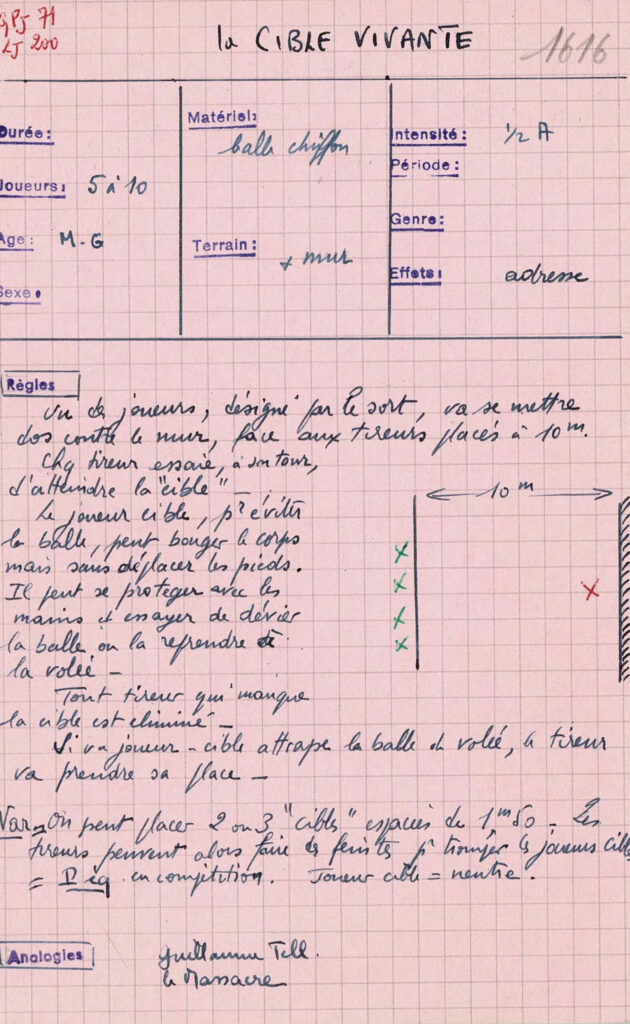 GPJ 71
LJ 200
la CIBLE VIVANTE
1616
Durée:
Joueurs: 5 à 10
Age: M-G
Sexe:
Matériel:
balle chiffon
Terrain:
+ mur
Intensité: 1/2 A
Période:
Genre:
Effets: adresse
Règles
Un des joueurs, désigné par le sort, va se mettre
dos contre le mur, face aux tireurs placés à 10 m.
Chq tireur essaie, à son tour,
d'atteindre la "cible" -
Le joueur cible, pr éviter
la balle, peut bouger le corps
mais sans déplacer les pieds.
Il peut se protéger avec les
mains et essayer de dévier
la balle ou la reprendre de
la volée -
Tout tireur qui manque
la cible est éliminé -
Si un joueur-cible attrape la balle de volée, le tireur
va prendre sa place -
10 m
Var = On peut placer 2 ou 3 "cibles" espacées de 1m50 - Les
tireurs peuvent alors faire des feintes pr tromper les joueurs cibles
= éq. en compétition. Joueur cible = neutre.
Analogies
Guillaume Tell.
le Massacre